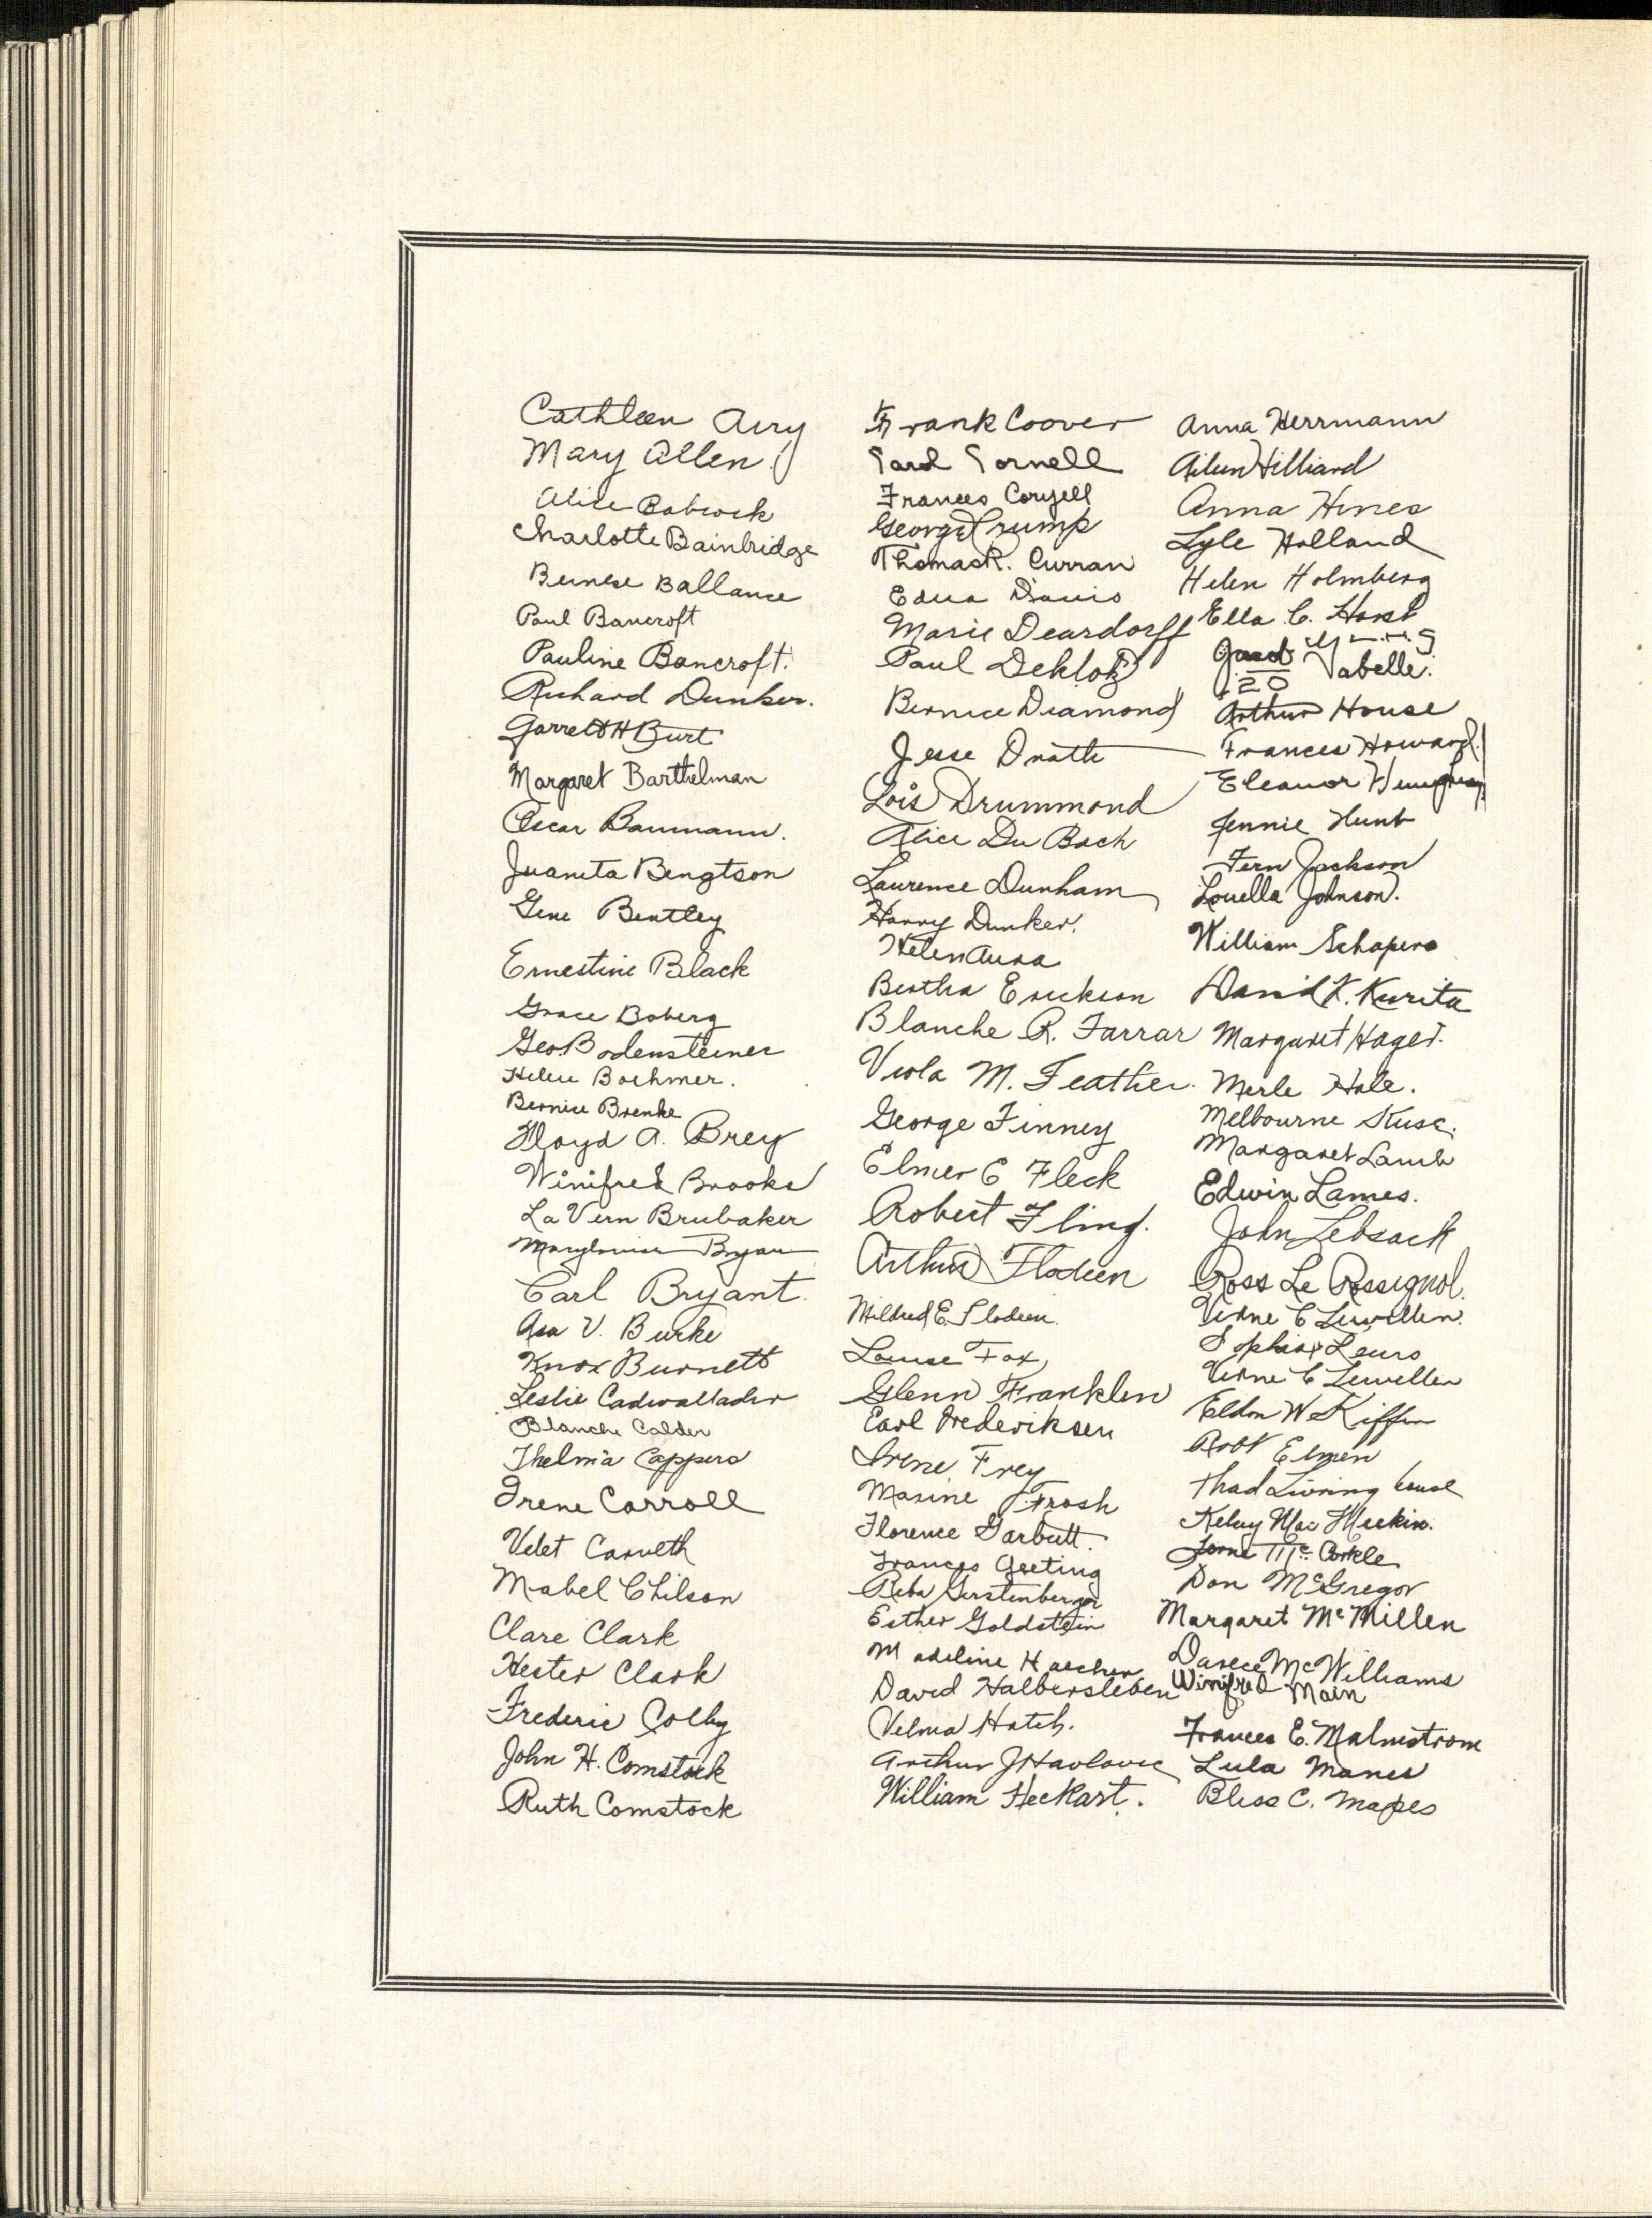 Cathleen Airy
Mary Allen
Alice Babcock
Charlotte Bainbridge
Bernese Ballance
Paul Bancroft
Pauline Bancroft.
Richard Dunker.
Garrett H Burt
Margaret Barthelman
Oscar Baumann.
Juanita Bengtson
Gene Bentley
Ernestine Black
Grace Boberg
Geo Bodensteiner
Helen Boehmer.
Bernice Brenke
Floyd A. Brey
Winifred Brooks
La Vern Brubaker
Marylouise Bryan
Carl Bryant.
Asa V. Burke
Knox Burnett
Leslie Cadwallader
Blanche Calder
Thelma Cappers
Irene Carroll
Velet Carveth
Mabel Chilson
Clare Clark
Hester Clark
Frederic Colby
John H. Comstock
Ruth Comstock
Frank Coover
Card Cornell
Frances Coryell
George Crump
Thomas R. Curran
Edna Davis
Marie Deardorff
Paul Deklotz
Bernice Diamond
Jesse Drath
Lois Drummond
Alice Du Bach
Laurence Dunham
Harry Dunker.
Helen Aura
Bertha Erickson
Blanche R. Farrar
Viola M. Feather.
George Finney
Elmer E Fleck
Robert Fling.
Arthur Flodeen
Mildred E. Flodeen.
Louise Fox
Glenn Franklin
Earl Frederiksen
Irene Frey
Maxine Frosh
Florence Garbutt.
Frances Geeting
Reba Gerstenberger
Esther Goldstein
Madeline Haecker
David Halbersleben
Velma Hatch.
Arthur J Havlovic
William Heckart.
Anna Herrmann
Ailun Hilliard
Anna Hines
Lyle Holland
Helen Holmberg
Ella C. Horst
Vabelle.
20
Arthur House
Frances Howard.
Eleanor
Jennie Hunt
Fern Jackson
Louella Johnson.
William Schapero
David K. Kurita
Margaret Hager.
Merle Hale.
Melbourne Kuse.
Margaret Lamb
Edwin Lames.
John Lebsack
Ross Le Rossignol.
Verne C Lewellen.
Sophia Leurs
Verne C Lewellen
Eldon W Kiffin
Robt Elmen
Thad Living house
Kelsy Mac Meekin.
Lorna McCorkle
Don McGregor
Margaret McMillen
Darece McWilliams
Winifred Main
Frances E. Malmstrom
Lula Manes
Bliss C. Mapes